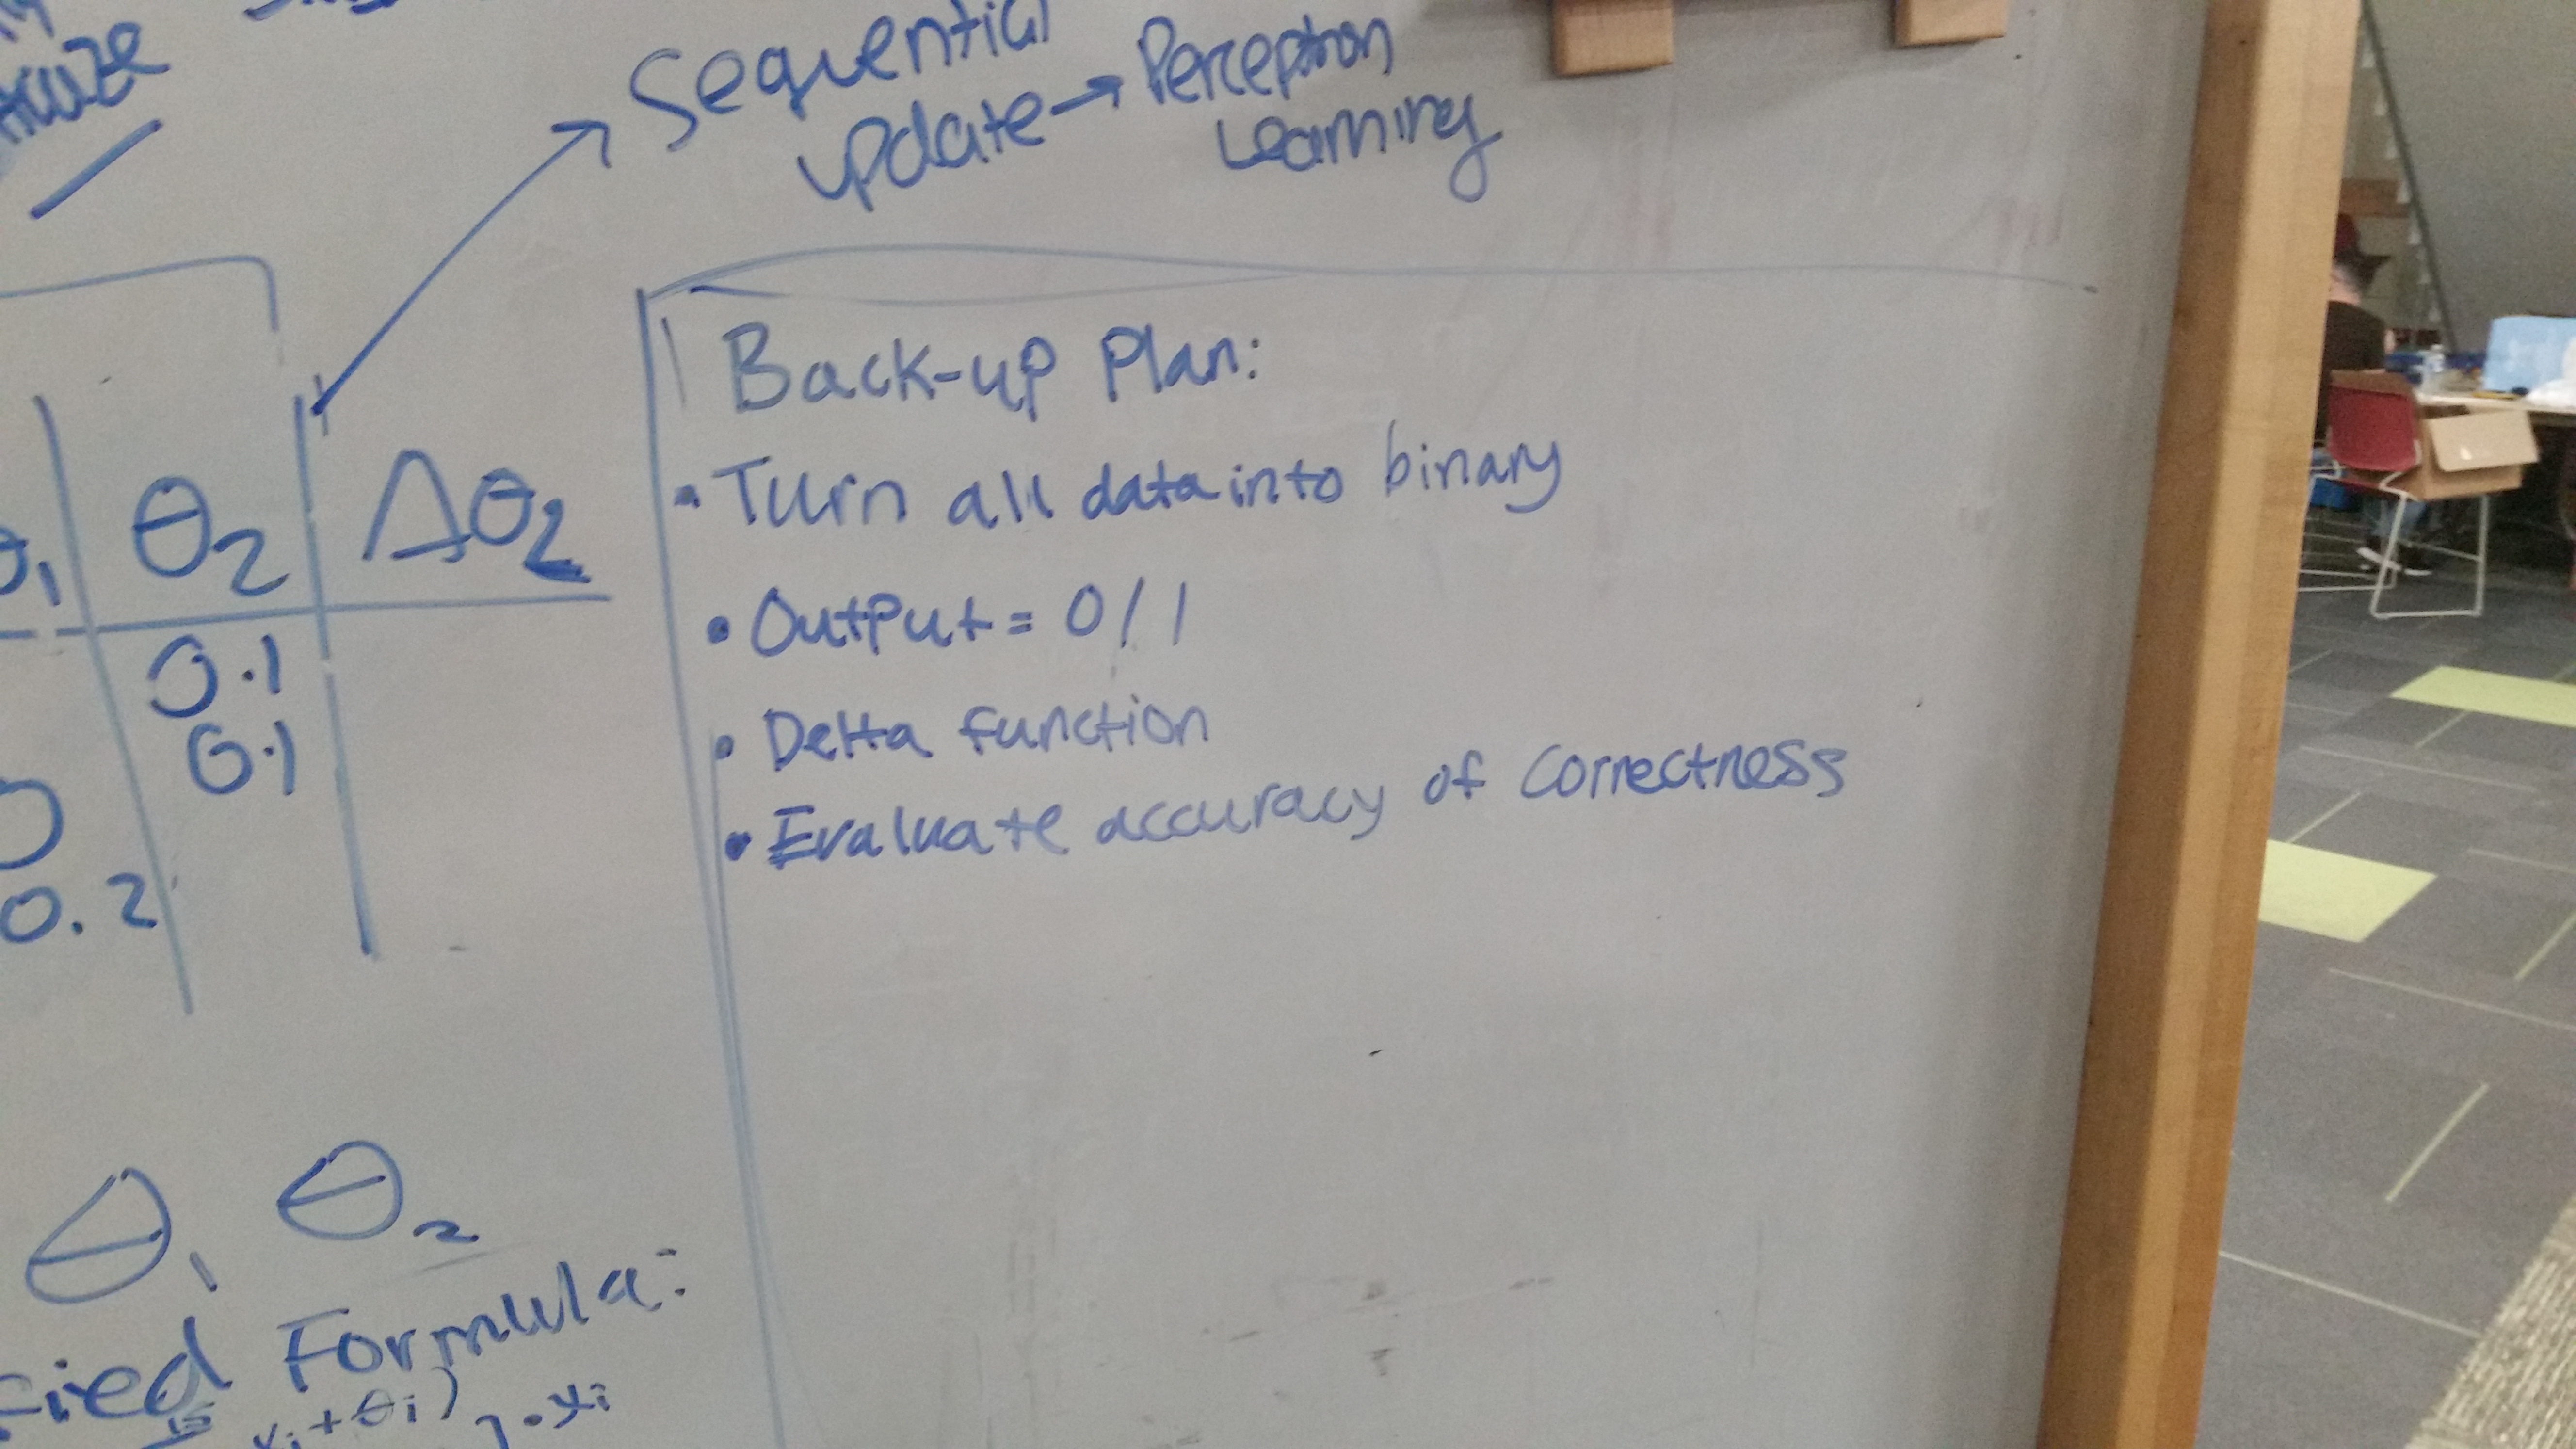 Sequential
update → Perceptron
Learning
θ2 Δθ2
0.1
0.1
0.2
Back-up Plan:
• Turn all data into binary
• Output = 0/1
• Delta function
• Evaluate accuracy of correctness
θ1 θ2
Formula:
+ θi)
· xi